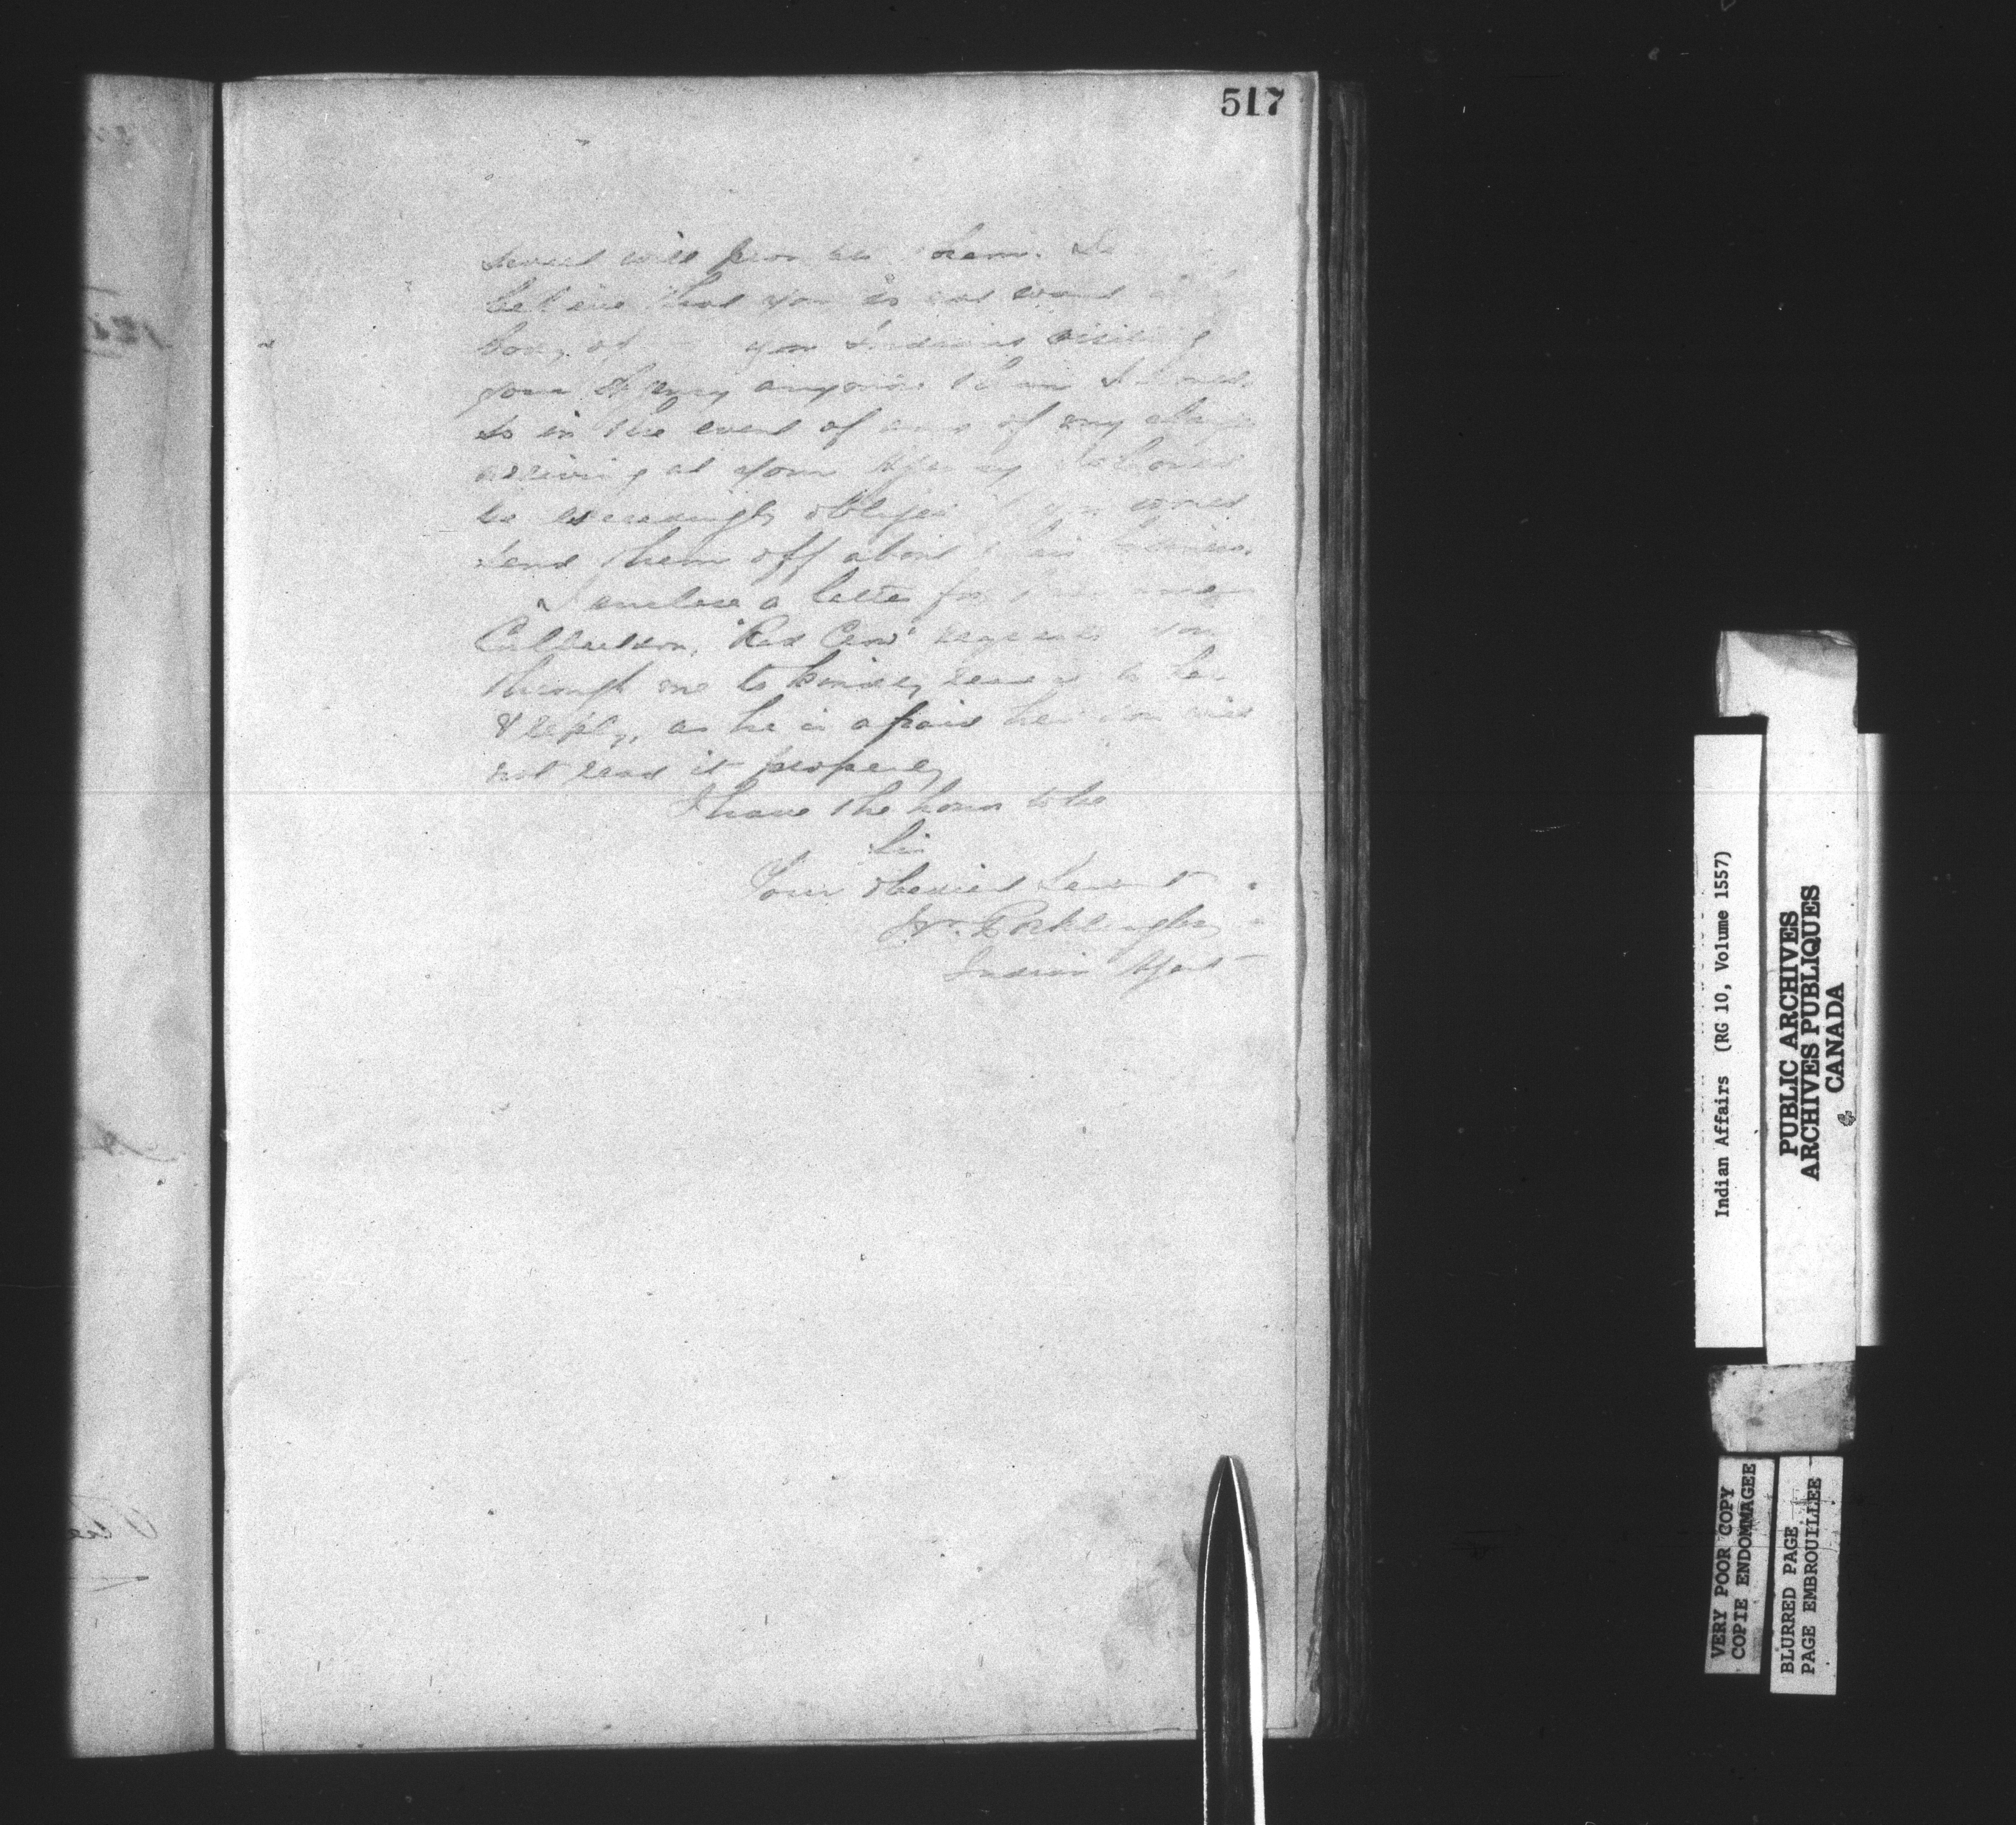 517
will from them. I
believe that you do not want
body of your Indians visiting
your Agency anymore than I
so in the event of any of my
arriving at your Agency I should
be exceedingly obliged if you would
send them off about their business.
I enclose a letter for
Culbertson, "Red Crow" requests you
through me to kindly read it to her
& reply, as he is afraid her son will
not read it properly
I have the honor to be
Sir
Your obedient Servant
W. Pocklington
Indian Agent
Indian Affairs (RG 10, Volume 1557)
PUBLIC ARCHIVES
ARCHIVES PUBLIQUES
CANADA
VERY POOR COPY
COPIE ENDOMMAGEE
BLURRED PAGE
PAGE EMBROUILLEE